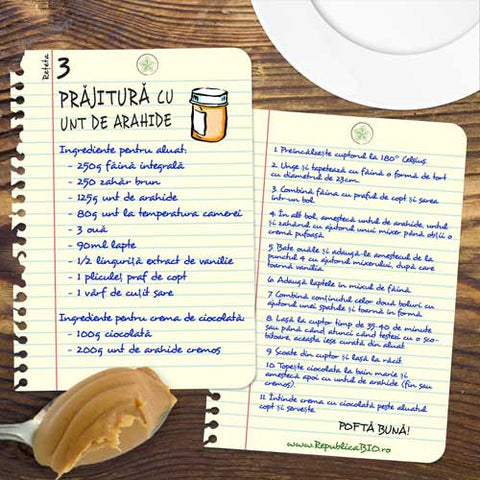 Rețeta
3
PRĂJITURĂ CU
UNT DE ARAHIDE
Ingrediente pentru aluat:
- 250g făină integrală
- 250 zahăr brun
- 125g unt de arahide
- 80g unt la temperatura camerei
- 3 ouă
- 90ml lapte
- 1/2 linguriță extract de vanilie
- 1 pliculeț praf de copt
- 1 vârf de cuțit sare
Ingrediente pentru crema de ciocolată:
- 100g ciocolată
- 200g unt de arahide cremos
1. Preîncălzește cuptorul la 180° Celsius.
2. Unge și tapetează cu făină o formă de tort
cu diametrul de 23cm.
3. Combină făina cu praful de copt și sarea
într-un bol.
4. În alt bol, amestecă untul de arahide, untul
și zahărul cu ajutorul unui mixer până obții o
cremă pufoasă.
5. Bate ouăle și adaugă-le amestecul de la
punctul 4 cu ajutorul mixerului, după care
toarnă vanilia.
6. Adaugă laptele în mixul de făină.
7. Combină conținutul celor două boluri cu
ajutorul unei spatule și toarnă în formă.
8. Lasă la cuptor timp de 35-40 de minute
sau până când atunci când testezi cu o sco-
bitoare, aceasta iese curată din aluat.
9. Scoate din cuptor și lasă la răcit.
10. Topește ciocolata la bain marie și
amestecă apoi cu untul de arahide (fin sau
cremos).
11. Întinde crema cu ciocolată peste aluatul
copt și servește.
POFTĂ BUNĂ!
www.RepublicaBIO.ro